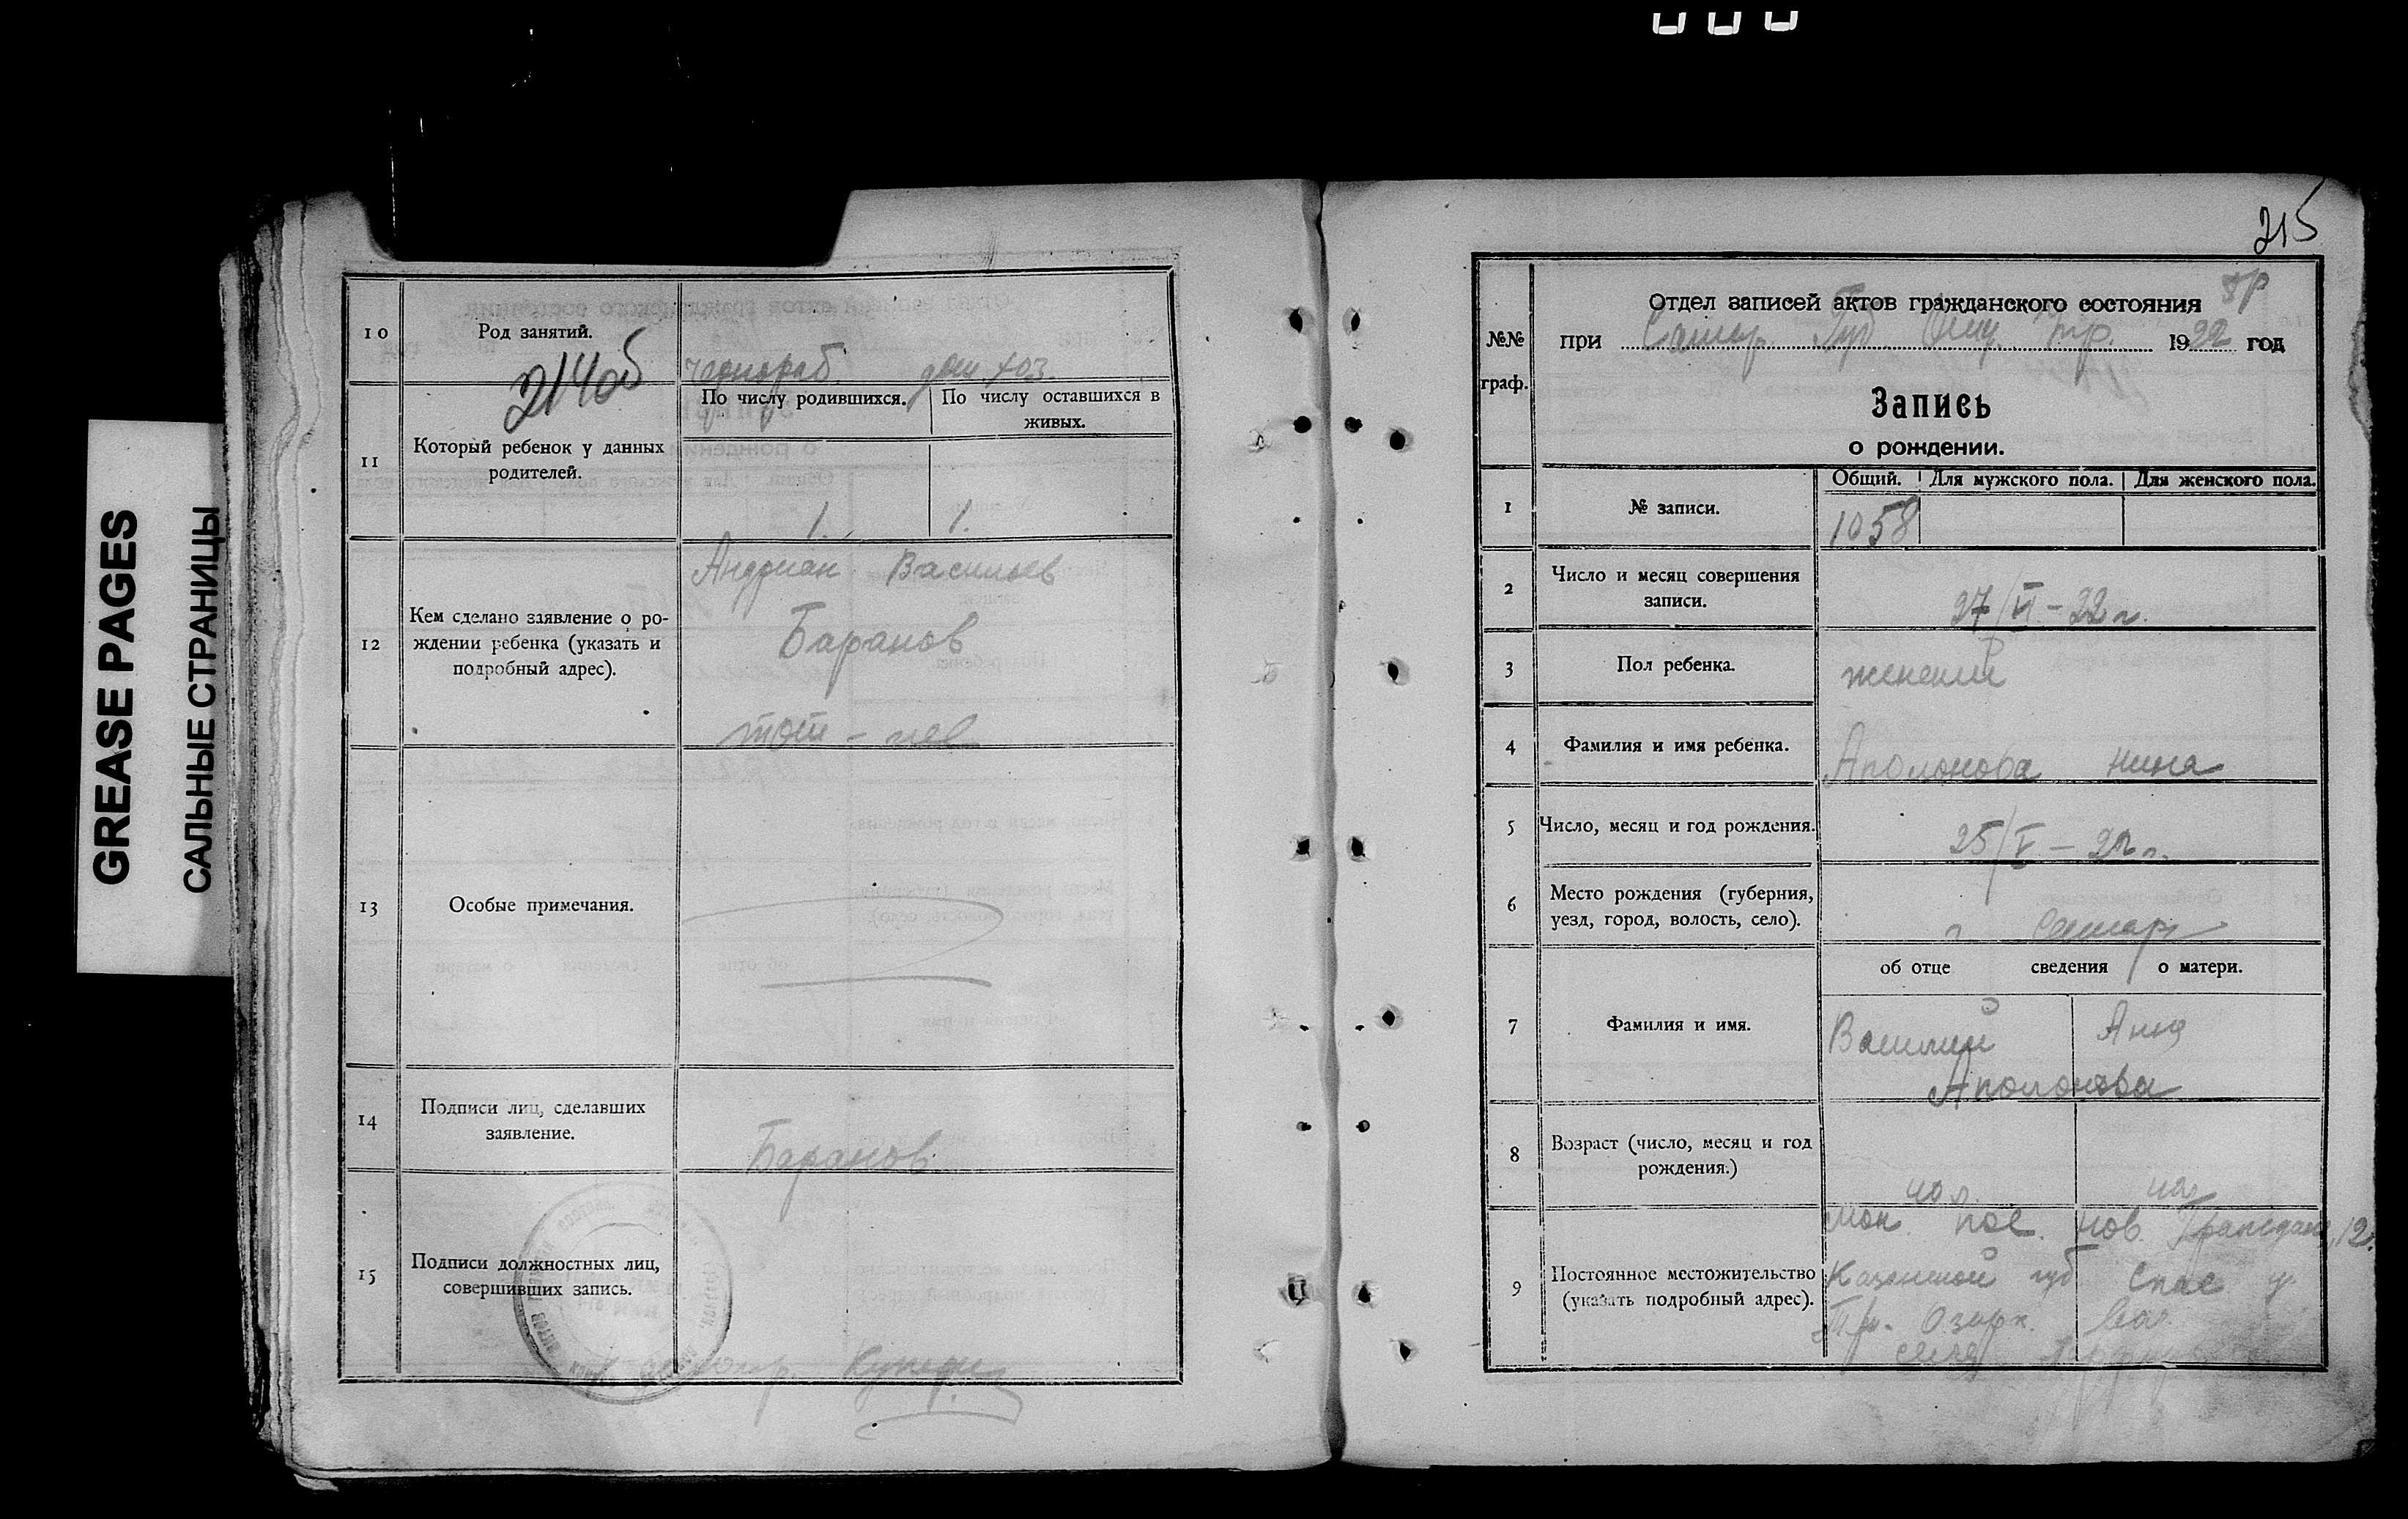 GREASE PAGES
САЛЬНЫЕ СТРАНИЦЫ
10
Род занятий.
чернораб. дом. хоз.
214об
11
Который ребенок у данных
родителей.
По числу родившихся.
По числу оставшихся в
живых.
1.
1.
12
Кем сделано заявление о ро-
ждении ребенка (указать и
подробный адрес).
Андриан Васильев
Баранов
13
Особые примечания.
14
Подписи лиц, сделавших
заявление.
Баранов
15
Подписи должностных лиц,
совершивших запись.
215
№№
граф.
Отдел записей актов гражданского состояния
при Самар. Губ. 1922 год
Запись
о рождении.
1
№ записи.
Общий.
Для мужского пола.
Для женского пола.
1058
2
Число и месяц совершения
записи.
27/VI – 22 г.
3
Пол ребенка.
женский
4
Фамилия и имя ребенка.
Аполонова Нина
5
Число, месяц и год рождения.
25/V – 22 г.
6
Место рождения (губерния,
уезд, город, волость, село).
г. Самара
об отце сведения о матери.
7
Фамилия и имя.
Василий
Анна
Аполонова
8
Возраст (число, месяц и год
рождения.)
9
Постоянное местожительство
(указать подробный адрес).
пос. нов.
Казанской губ Спас у
Озерк. вол.